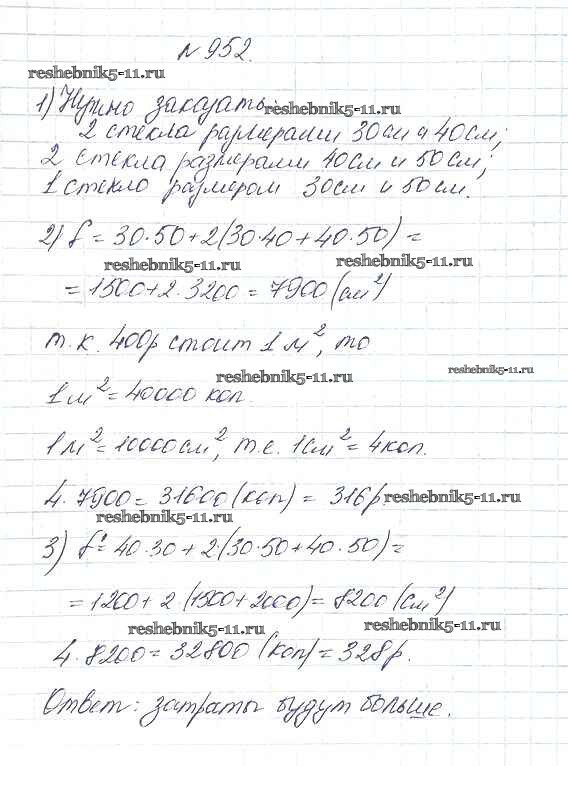 № 952.
reshebnik5-11.ru
1) Нужно заказать:
reshebnik5-11.ru
2 стекла размерами 30см и 40см;
2 стекла размерами 40см и 50см;
1 стекло размером 30см и 50см.
2) S = 30·50+2(30·40+40·50) =
reshebnik5-11.ru
reshebnik5-11.ru
= 1500+2·3200 = 7900 (см²)
т.к. 400р стоит 1 м², то
reshebnik5-11.ru
reshebnik5-11.ru
1м² = 40000 коп.
1м² = 10000см², т.е. 1см² = 4коп.
4·7900 = 31600 (коп) = 316р.
reshebnik5-11.ru
reshebnik5-11.ru
3) S' = 40·30 + 2·(30·50+40·50) =
= 1200 + 2·(1500+2000) = 8200 (см²)
reshebnik5-11.ru
reshebnik5-11.ru
4·8200 = 32800 (коп) = 328р.
Ответ: затраты будут больше.